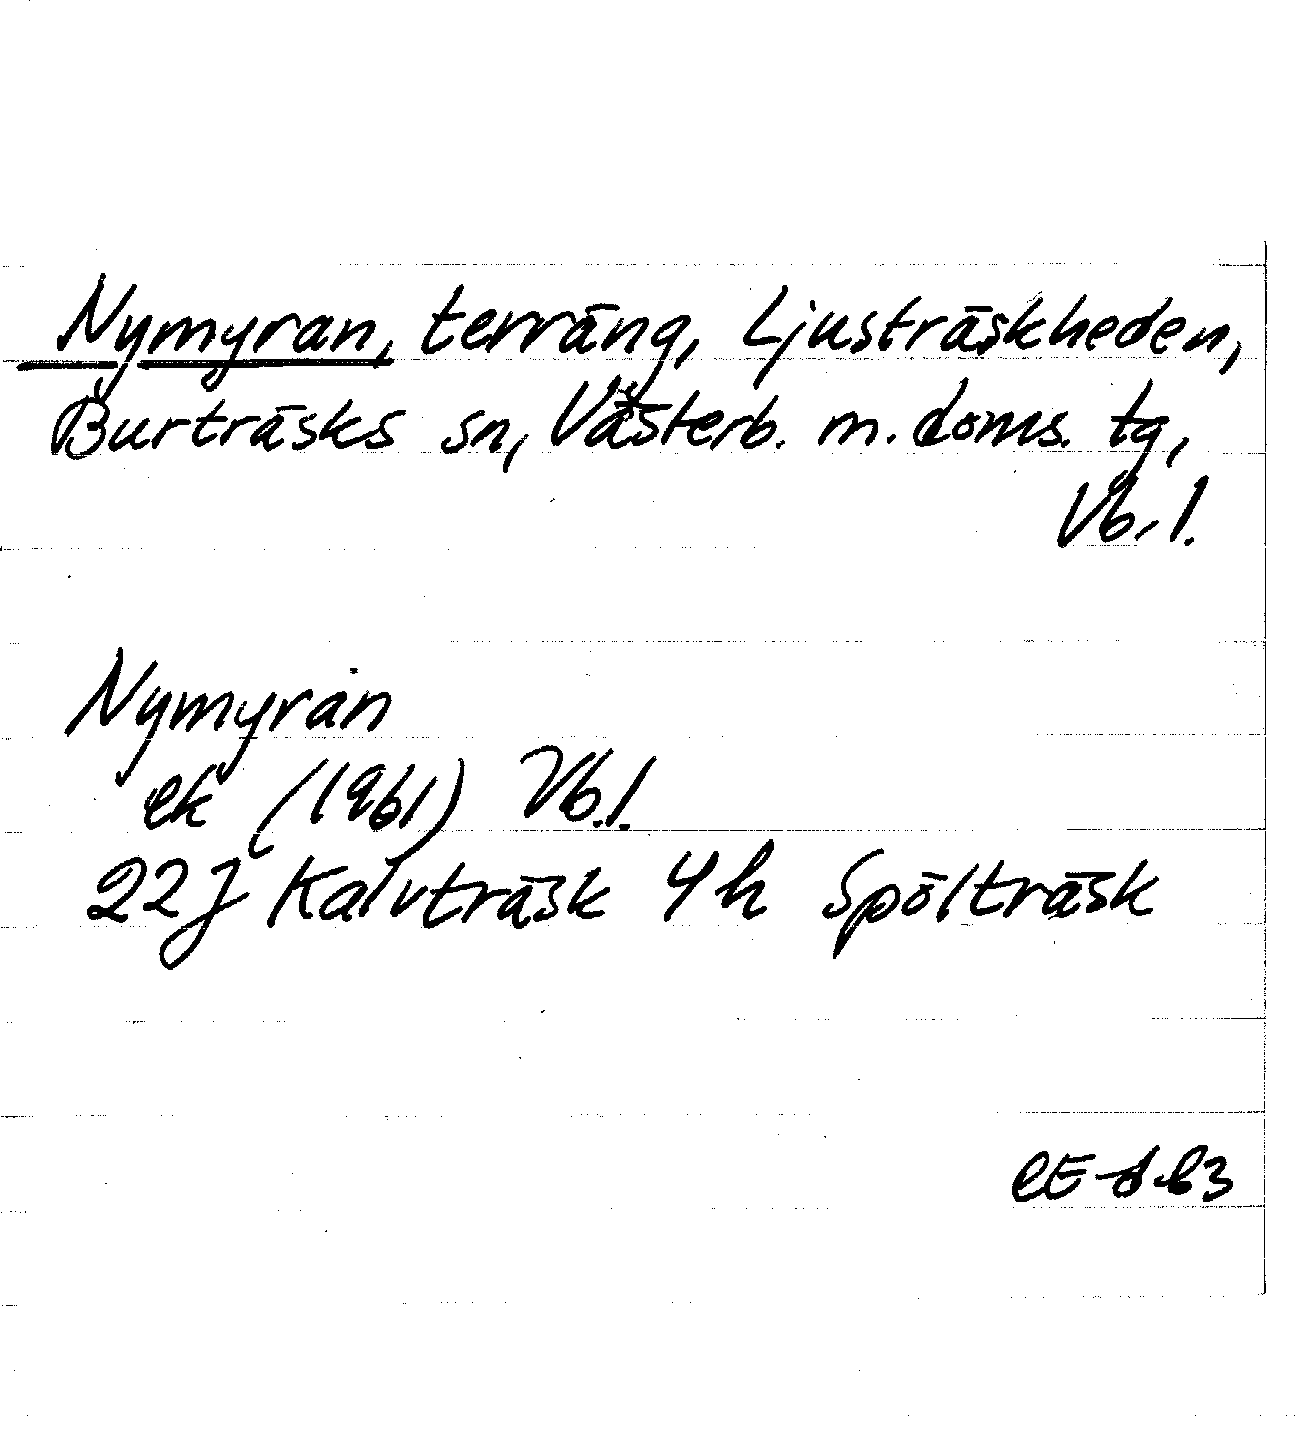 Nymyran, terräng, Ljusträskheden,
Burträsks sn, Västerb. m. doms. tg,
Vb. l.
Nymyran
ek (1961) Vb.l.
22J Kalvträsk 4h Spölträsk